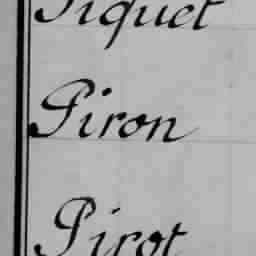 Piquet
Piron
Pirot